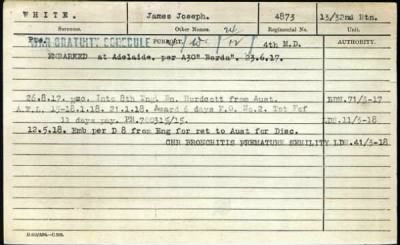 WHITE. James Joseph. 4873 13/32nd Btn.
Surname. Other Names. Regimental No.
WAR GRATUITY SCHEDULE FORMAT. 4th M.D. AUTHORITY.
EMBARKED at Adelaide. per A30" Borda". 23.6.17.
26.8.17. Into 8th Bn. Hurdcott from Aust. 71/3-17
A.W.L. 15-18.1.18. 21.1.18. Award 6 days F.P. No.2. Tot Fof
11 days pay. 11/3-18
12.5.18. Emb per D 8 from Eng for ret to Aust for Disc.
CHR BRONCHITIS PREMATURE SENILITY LDR.41/3-18